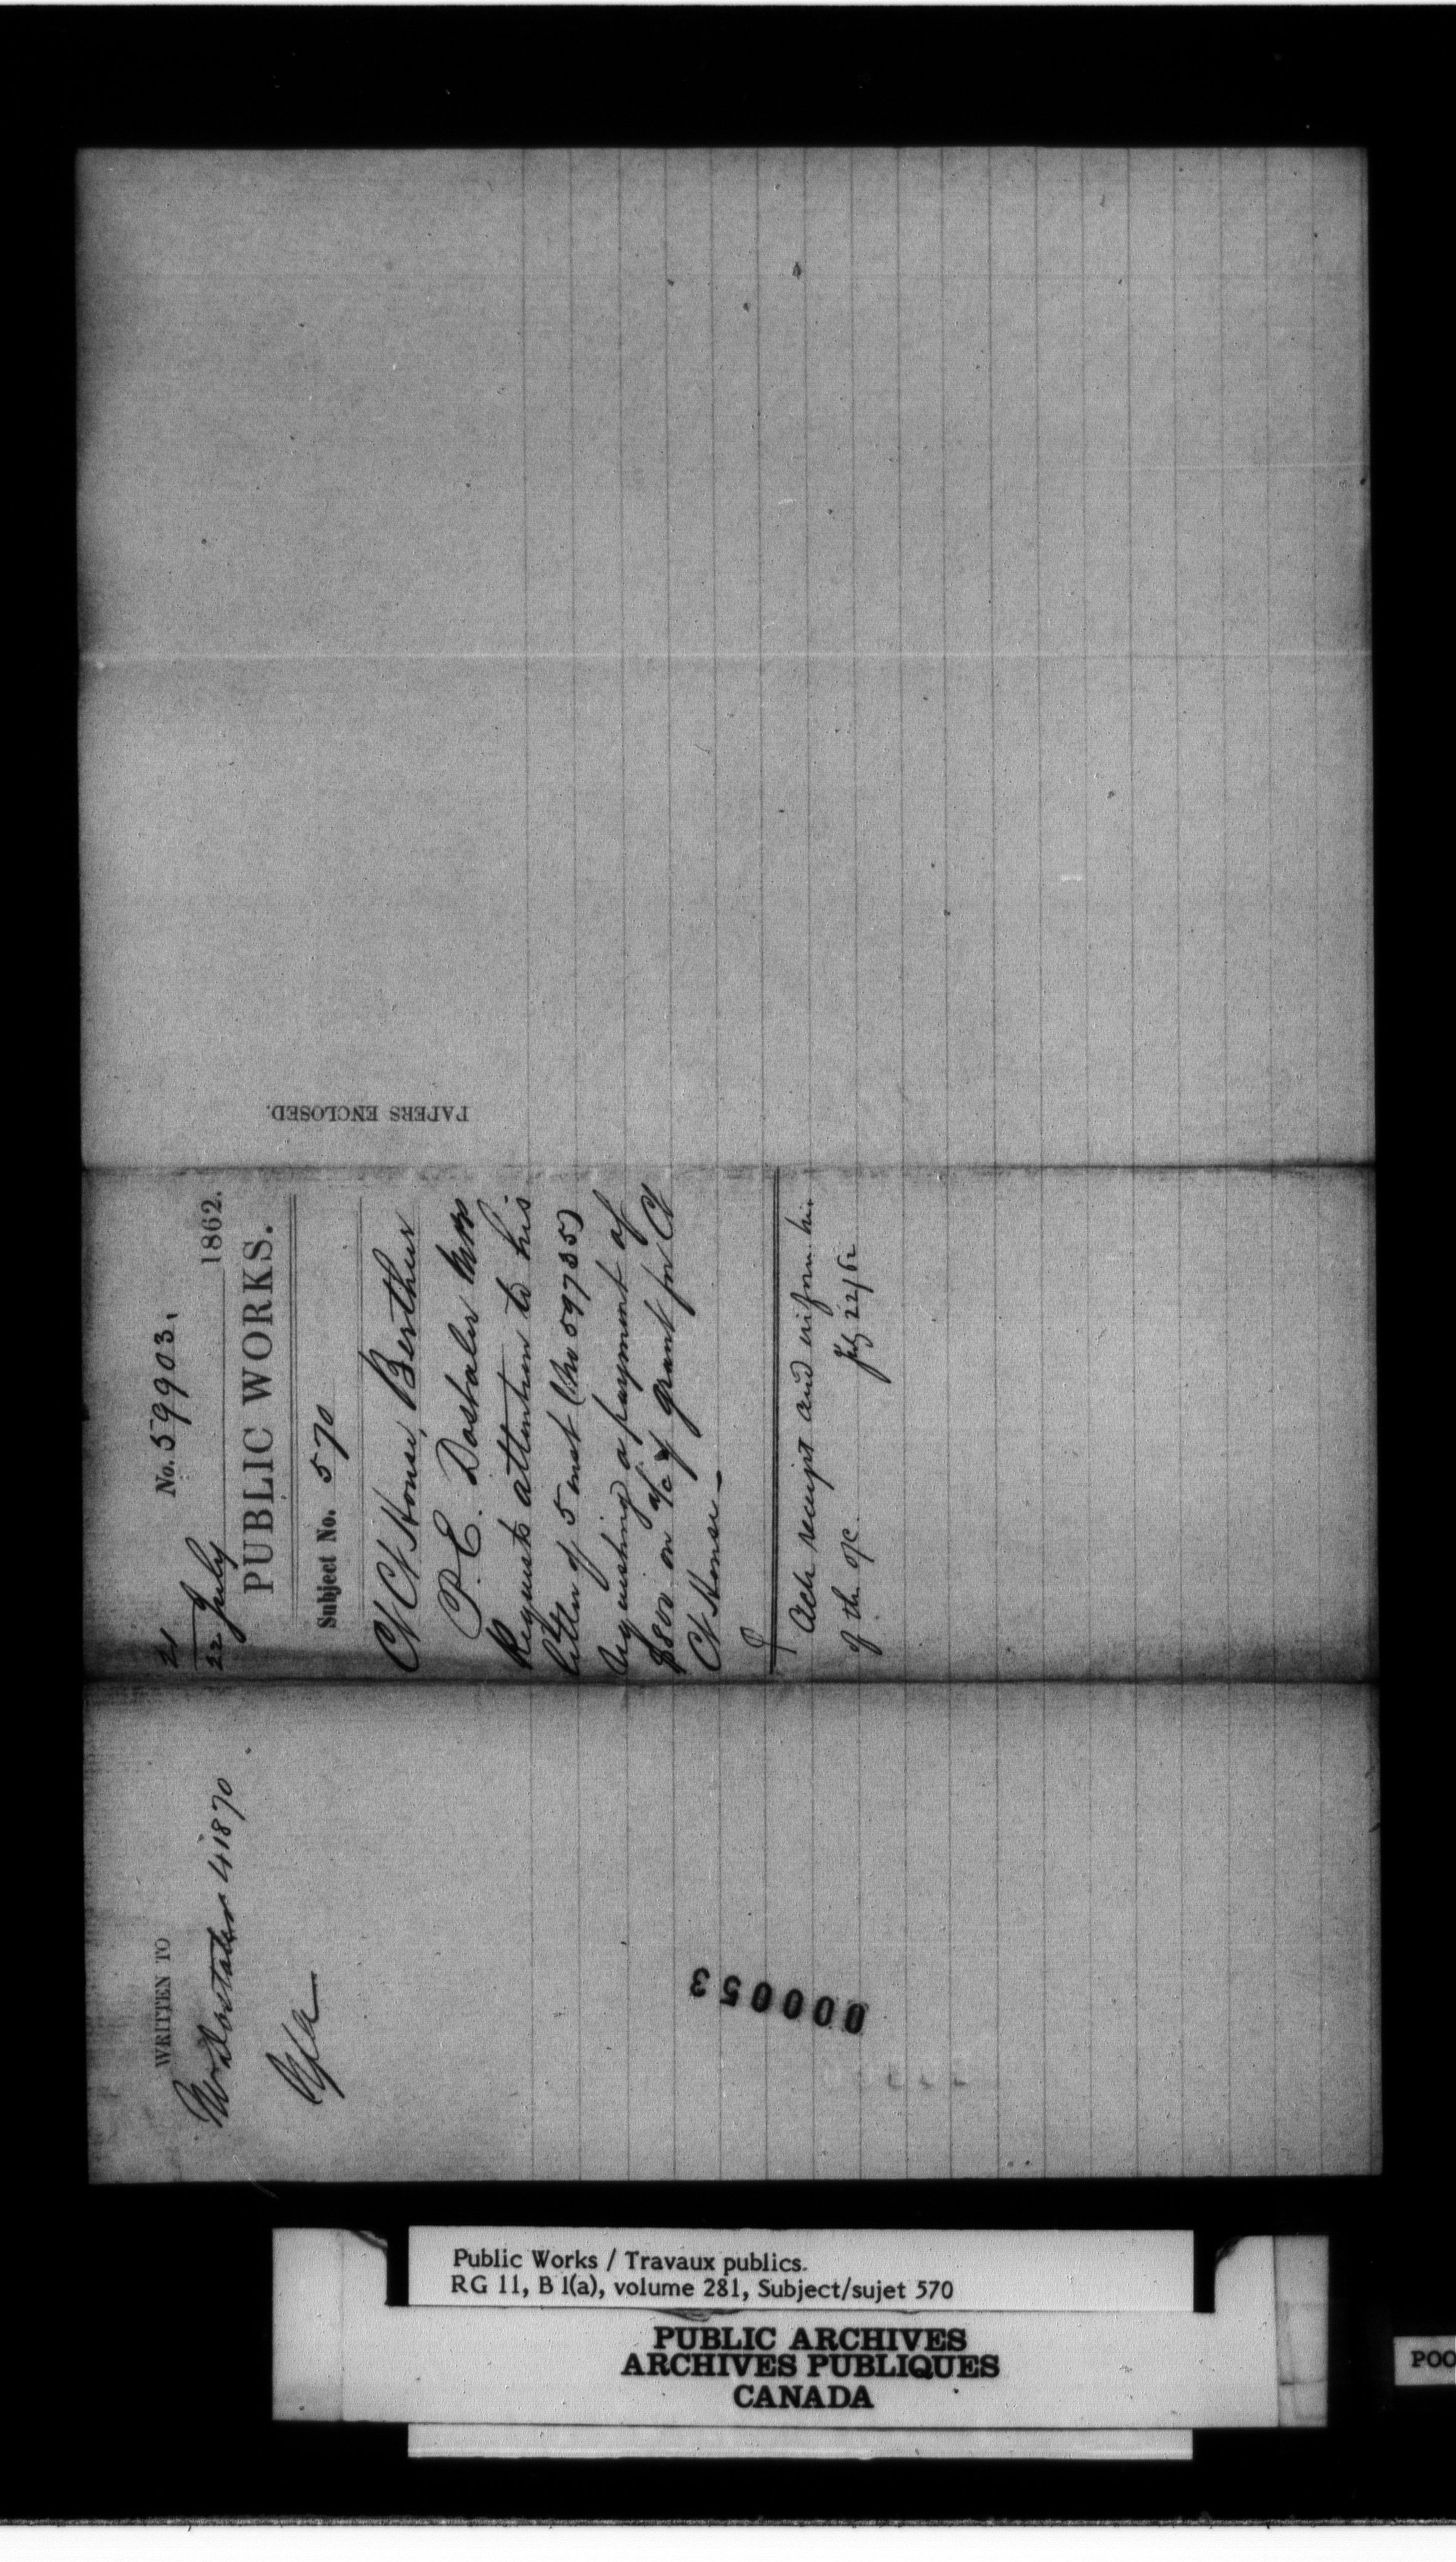 No. 59903.
21
22 July 1862.
PUBLIC WORKS.
Subject No. 570
Ct House, Berthier
P. E. Dostaler
Requests attention to his
letter of 5 inst (No 59735)
requesting a payment of
$800 on a/c of grant for Ct
Ct House
Ack receipt and inform him
of the o/c. July 22/62
PAPERS ENCLOSED.
WRITTEN TO
Mr Dostaler 41870
000053
Public Works / Travaux publics.
RG 11, B 1(a), volume 281, Subject/sujet 570
PUBLIC ARCHIVES
ARCHIVES PUBLIQUES
CANADA
POO